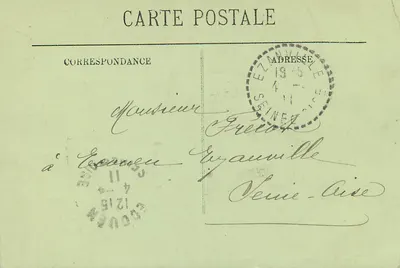 CARTE POSTALE
CORRESPONDANCE
ADRESSE
EZANVILLE
19 15
4 -
11
SEINE
OISE
Monsieur
à Ecouen Ezanville
Seine-Oise
ECOUEN
12 15
4 - 4
11